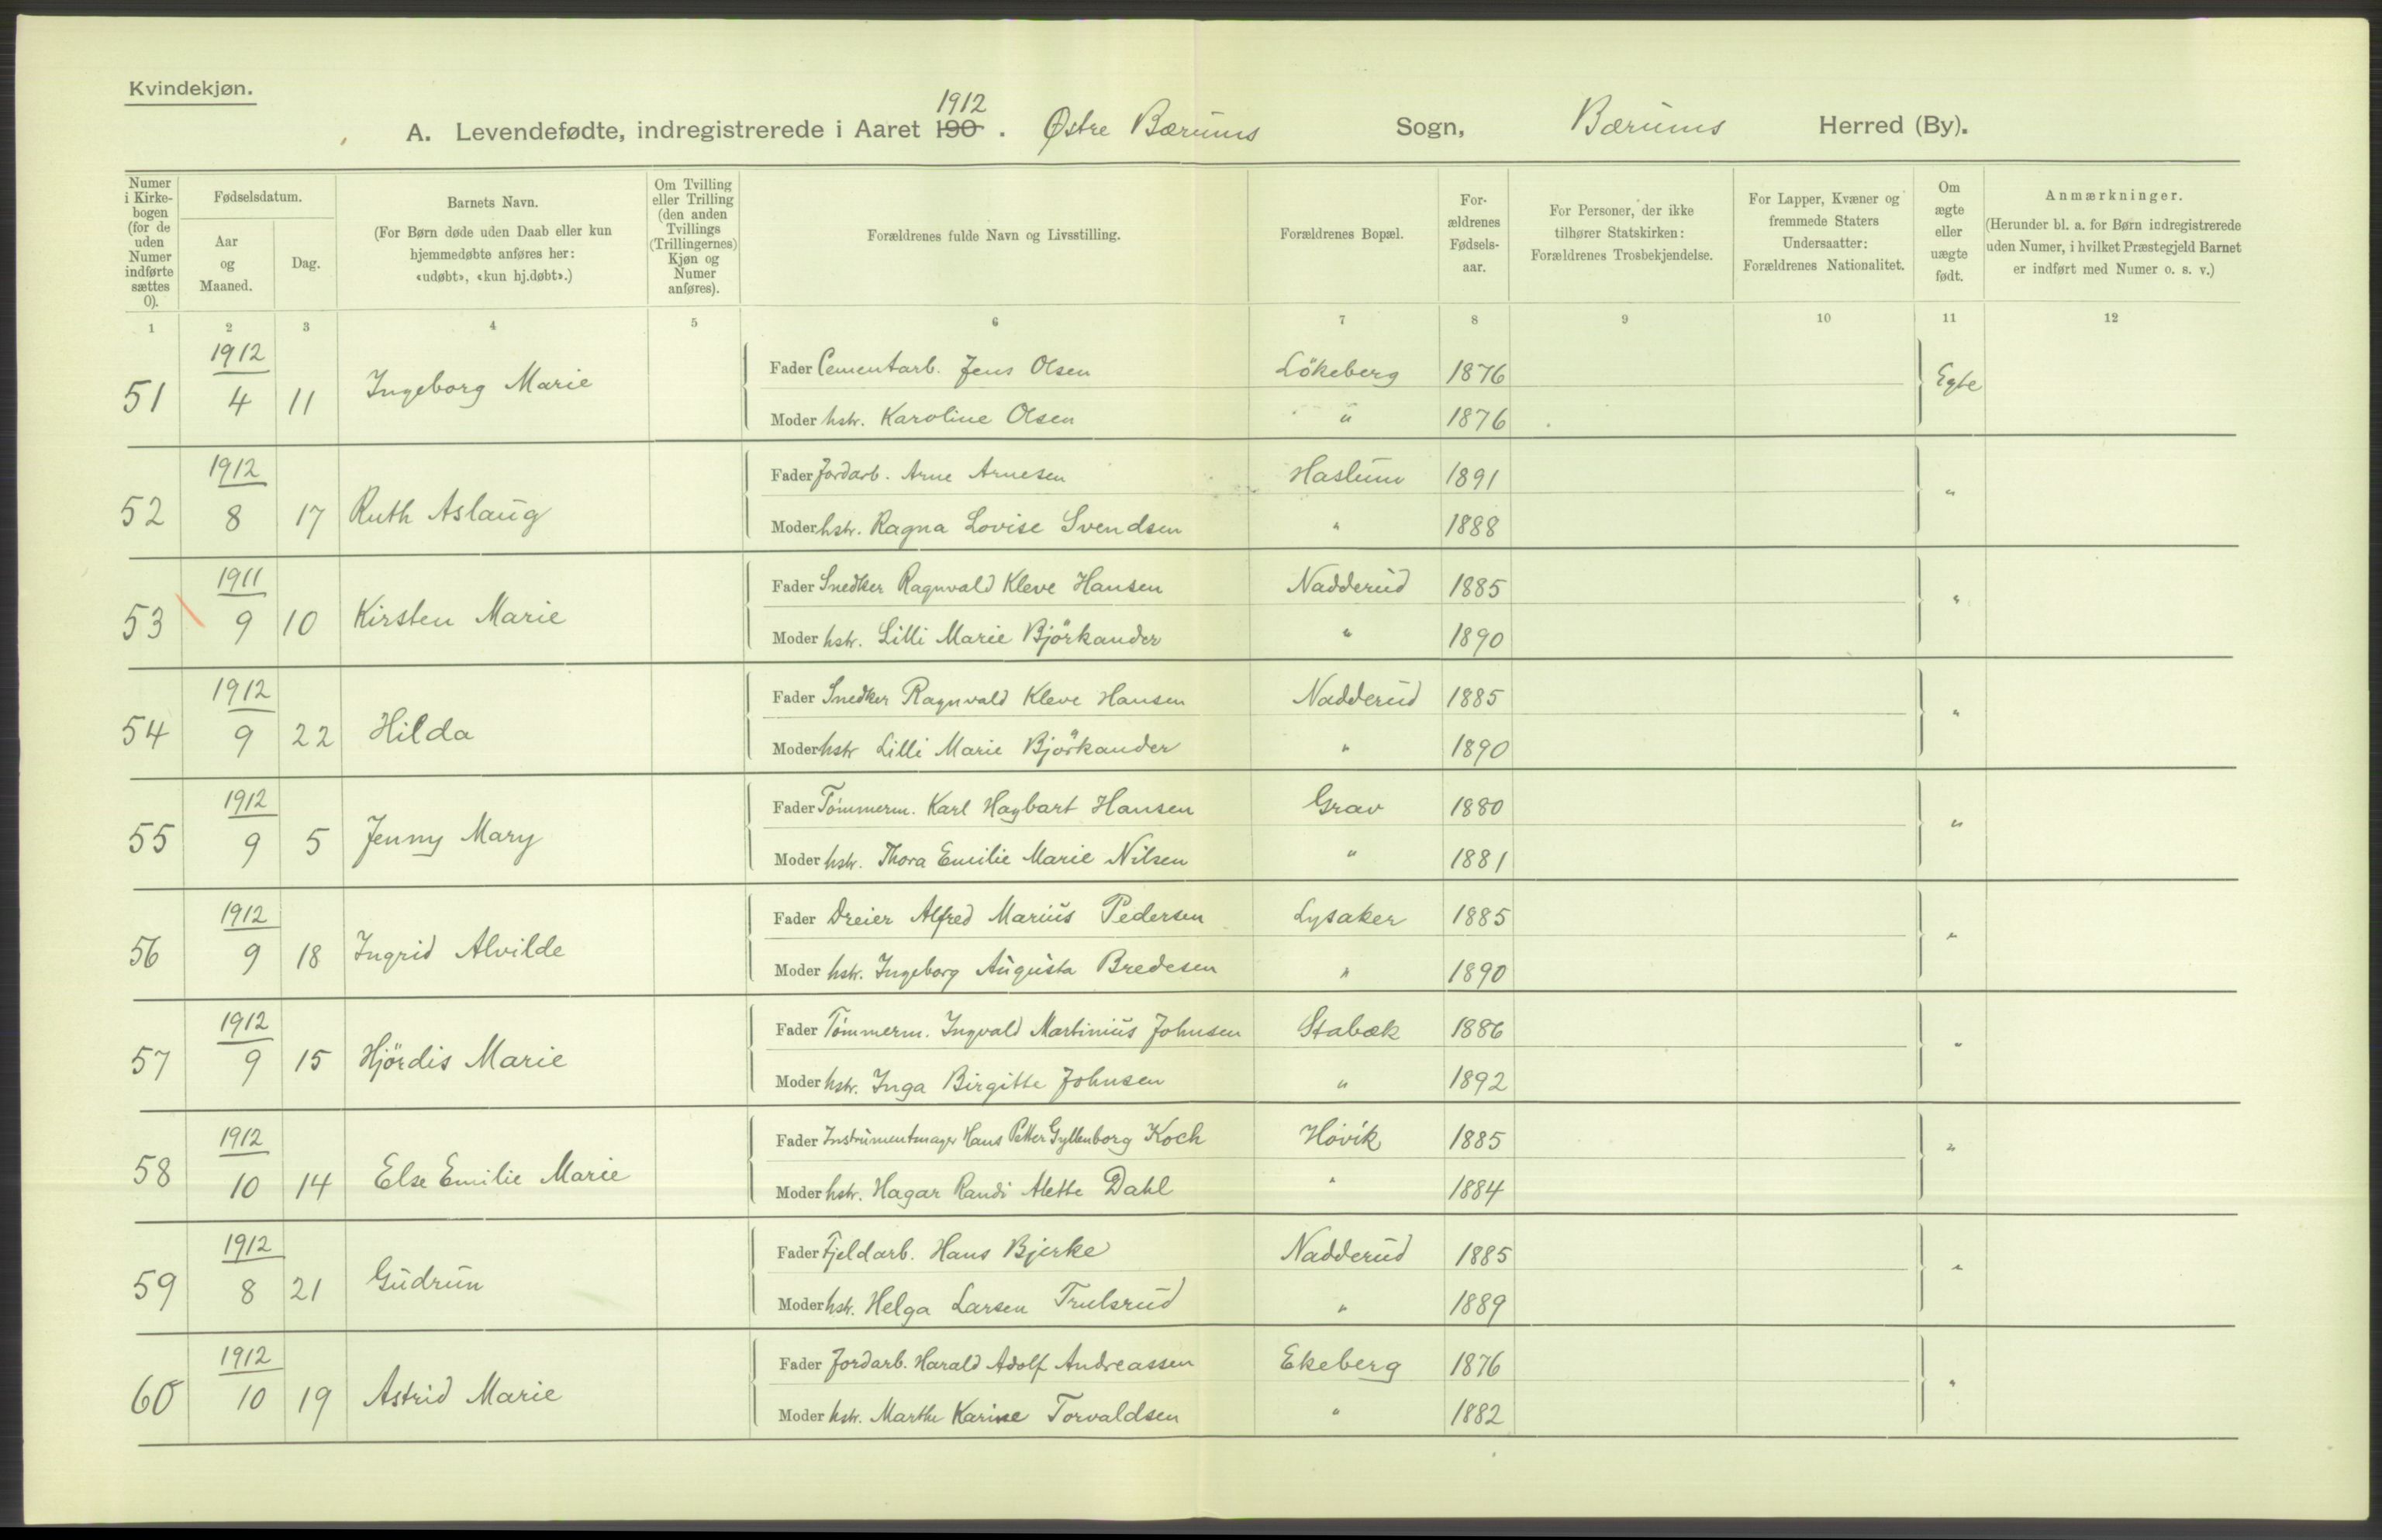 Kvindekjøn.
1912
A. Levendefødte, indregistrerede i Aaret 190 . Østre Bærums Sogn, Bærums Herred (By).
Numer i Kirke-bogen (for de uden Numer indførte sættes 0).
Fødselsdatum.
Aar og Maaned.
Dag.
Barnets Navn.
(For Børn døde uden Daab eller kun hjemmedøbte anføres her: «udøbt», «kun hj.døbt».)
Om Tvilling eller Trilling (den anden Tvillings (Trillingernes) Kjøn og Numer anføres).
Forældrenes fulde Navn og Livsstilling.
Forældrenes Bopæl.
For-ældrenes Fødsels-aar.
For Personer, der ikke tilhører Statskirken: Forældrenes Trosbekjendelse.
For Lapper, Kvæner og fremmede Staters Undersaatter: Forældrenes Nationalitet.
Om ægte eller uægte født.
Anmærkninger.
(Herunder bl. a. for Børn indregistrerede uden Numer, i hvilket Præstegjeld Barnet er indført med Numer o. s. v.)
1 2 3 4 5 6 7 8 9 10 11 12
1912
Fader Cementarb. Jens Olsen Lökeberg 1876
51 4 11 Ingeborg Marie Egte
Moder hstr. Karoline Olsen " 1876
1912
Fader Jordarb. Arne Arnesen Haslum 1891
52 8 17 Ruth Aslaug "
Moder hstr. Ragna Lovise Svendsen " 1888
1911
Fader Snedker Ragnvald Kleve Hansen Nadderud 1885
53 9 10 Kirsten Marie "
Moder hstr. Lilli Marie Björkander " 1890
1912
Fader Snedker Ragnvald Kleve Hansen Nadderud 1885
54 9 22 Hilda "
Moder hstr Lilli Marie Björkander " 1890
1912
Fader Tömmerm. Karl Hagbart Hansen Grav 1880
55 9 5 Jenny Mary "
Moder hstr. Thora Emilie Marie Nilsen " 1881
1912
Fader Dreier Alfred Marius Pedersen Lysaker 1885
56 9 18 Ingrid Alvilde "
Moder hstr. Ingeborg Augusta Bredesen " 1890
1912
Fader Tömmerm. Ingvald Martinius Johnsen Stabæk 1886
57 9 15 Hjördis Marie "
Moder hstr. Inga Birgitte Johnsen " 1892
1912
Fader Instrumentmager Hans Petter Gyllenborg Koch Hövik 1885
58 10 14 Else Emilie Marie "
Moder hstr. Hagar Randi Alette Dahl " 1884
1912
Fader Fjeldarb. Hans Bjerke Nadderud 1885
59 8 21 Gudrun "
Moder hstr. Helga Larsen Trulsrud " 1889
1912
Fader Jordarb. Harald Adolf Andreassen Ekeberg 1876
60 10 19 Astrid Marie "
Moder hstr. Marthe Karine Torvaldsen " 1882